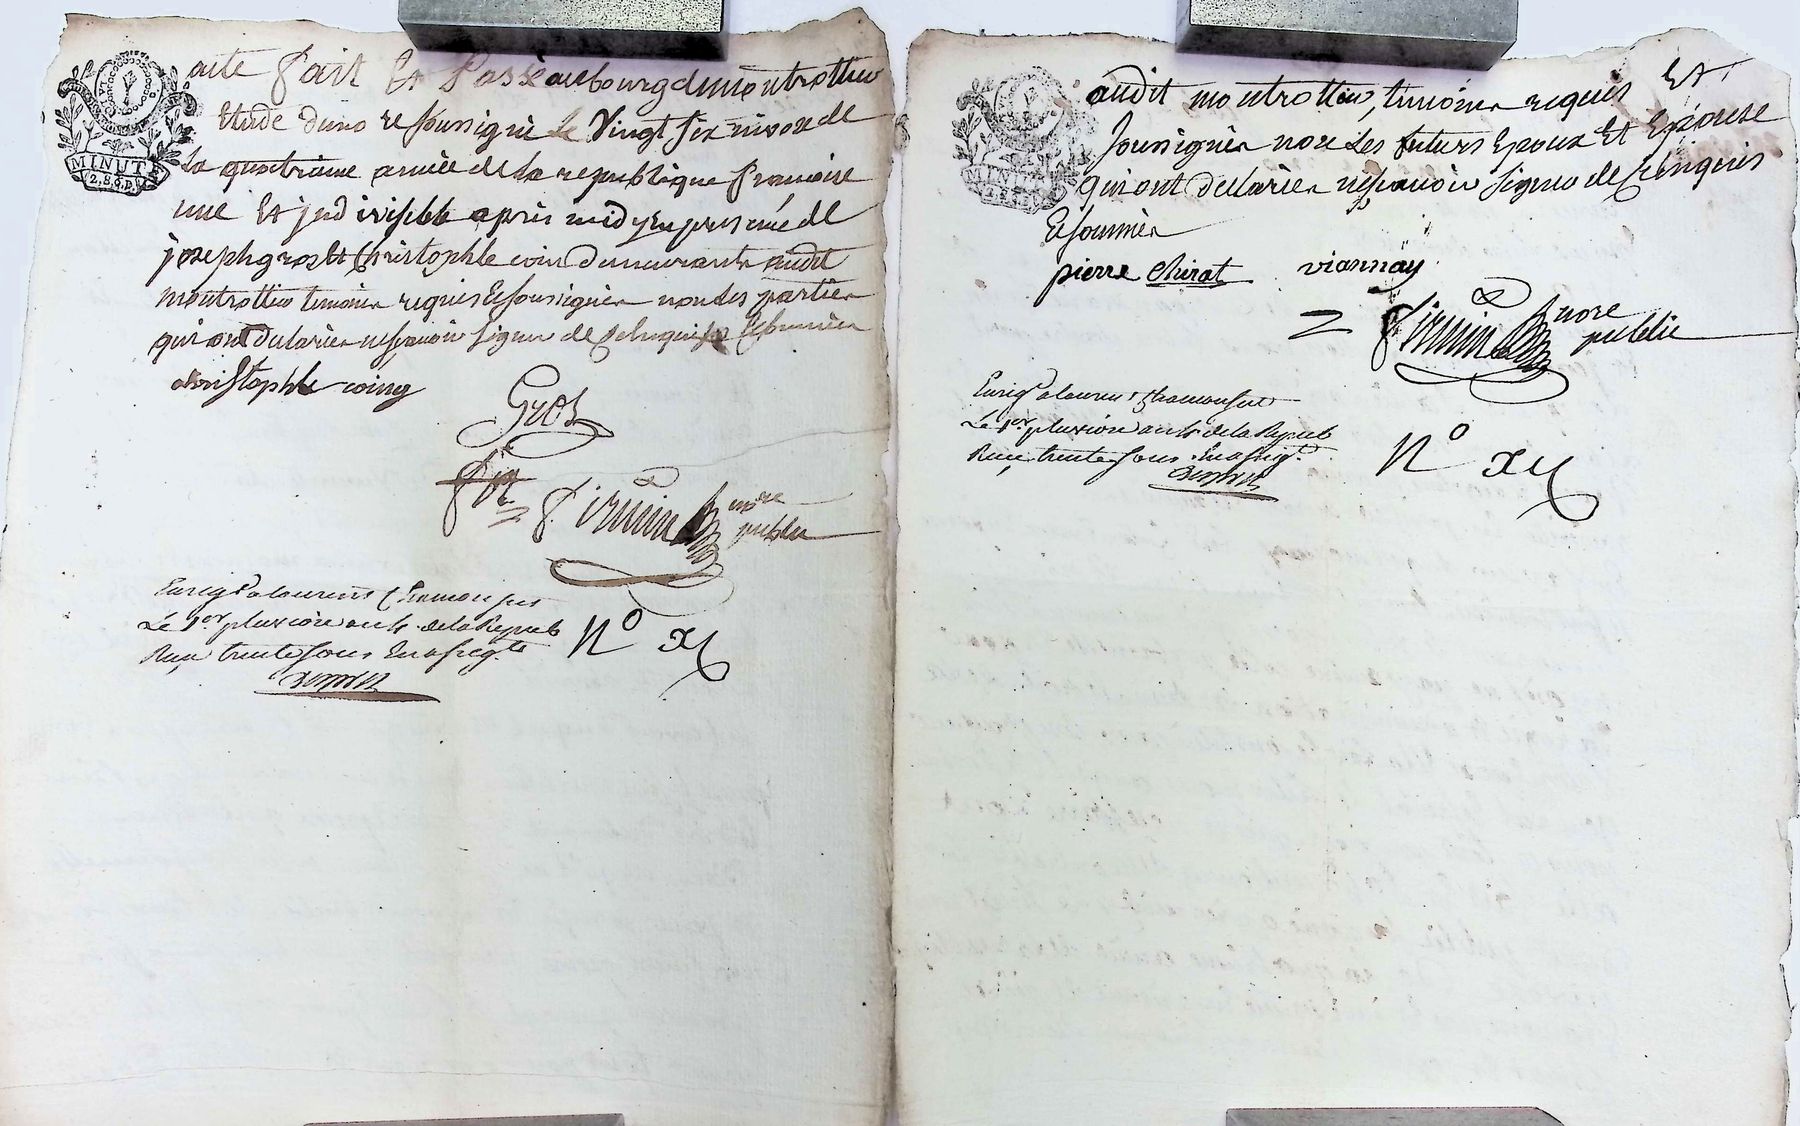 MINUT
acte fait Et Passé au bourg de montrottier
Etude du no re soussigné Le Vingt six nivose de
la quatrieme année de la republique francoise
une Et jndivisible apres midy En presence de
joseph gros Et Christophle coin demeurants audit
montrottier temoins requis Et soussignés non les parties
qui ont declarées ne scavoir signer de Enquises Et sommées
christophle coing
Gros
firmin nore
public
Enrigé a laurent chamousset
Le 1er pluviose an 4. de la Repub
Reçu trente sous En assigts
N° XI
Et
audit montrottier, temoins requis
soussignés non les futurs Epoux Et Epouse
qui ont declarées ne scavoir signer de Enquis
Et sommés
pierre Chirat viannay
firmin nore
public
Enrigé a laurent chamousset
Le 1er pluviose an 4 de la Repub
Reçu trente sous En assigt.
N° XII